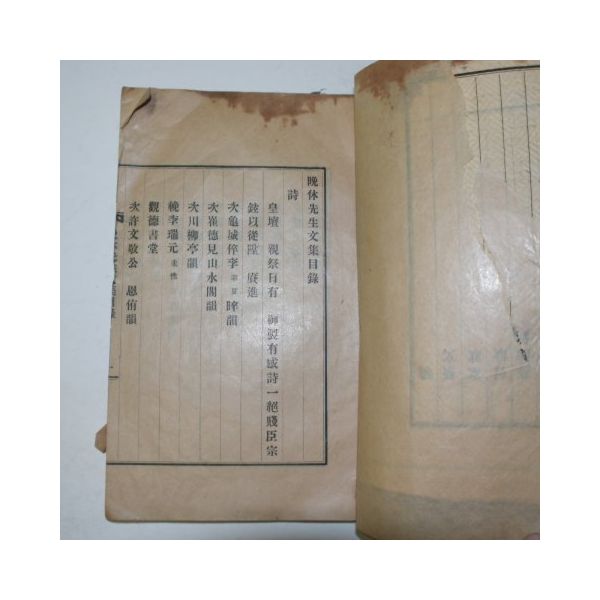 晩休先生文集目錄
詩
皇壇 親祭日有 御製有感詩一絕賤臣宗
銓以從陞 賡進
次龜城倅李 韻
次崔德見山水閣韻
次川柳亭韻
輓李瑞元
觀德書堂
次許文敬公 恩侑韻